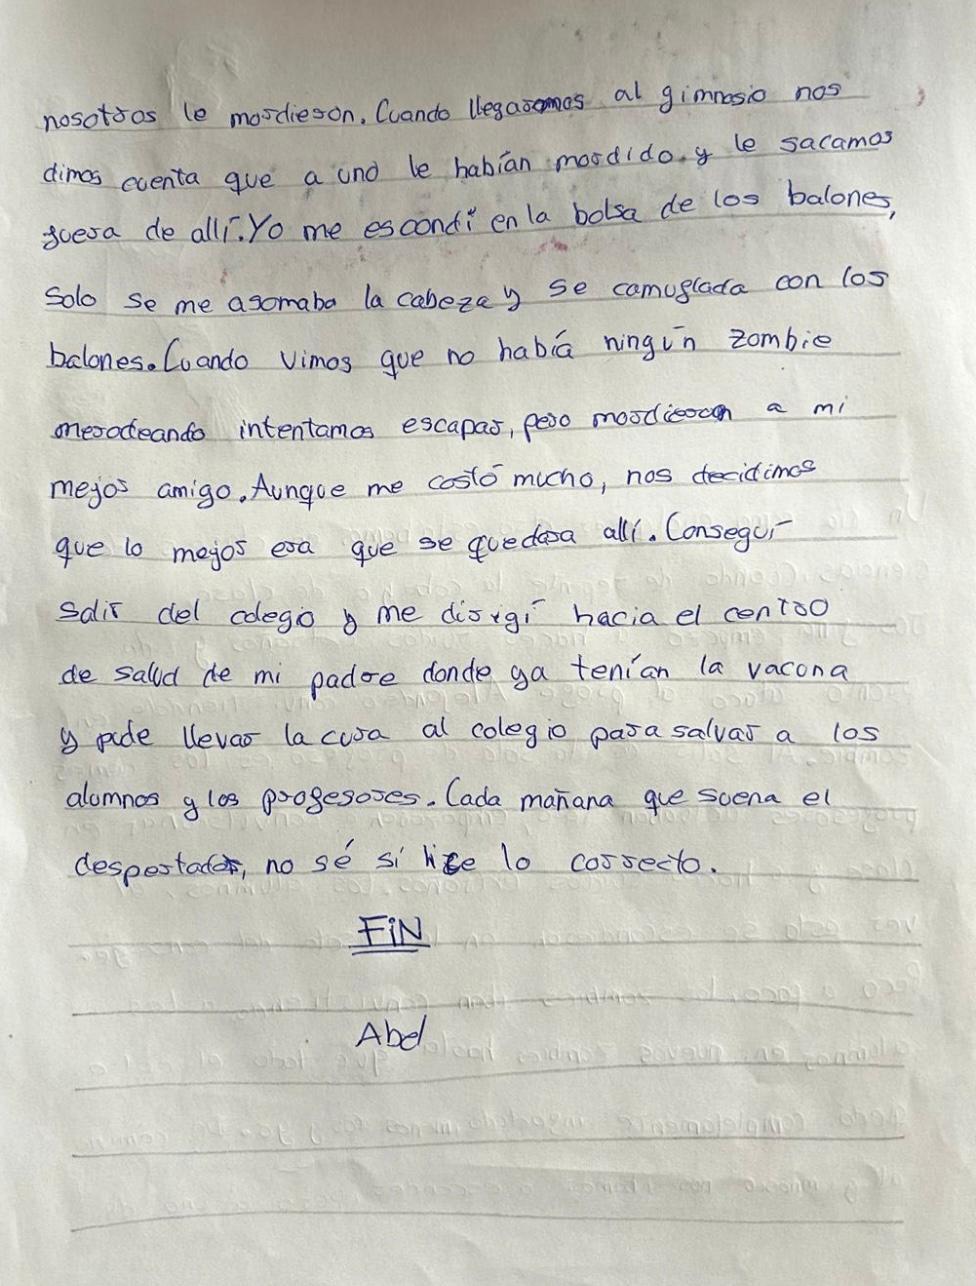 nosotros le mordieron. Cuando llegaromos al gimnasio nos
dimos cuenta que a uno le habían mordido y le sacamos
fuera de allí. Yo me escondí en la bolsa de los balones,
Solo se me asomaba la cabeza y se camuflada con los
balones. Cuando vimos que no había ningún zombie
merodeando intentamos escapar, pero mordieron a mi
mejor amigo. Aunque me costó mucho, nos decidimos
que lo mejor era que se quedara allí. Conseguí
salir del colegio y me dirigí hacia el centro
de salud de mi padre donde ya tenían la vacuna
y pude llevar la cura al colegio para salvar a los
alumnos y los profesores. Cada mañana que suena el
despertador, no sé si hice lo correcto.
FiN
Abel